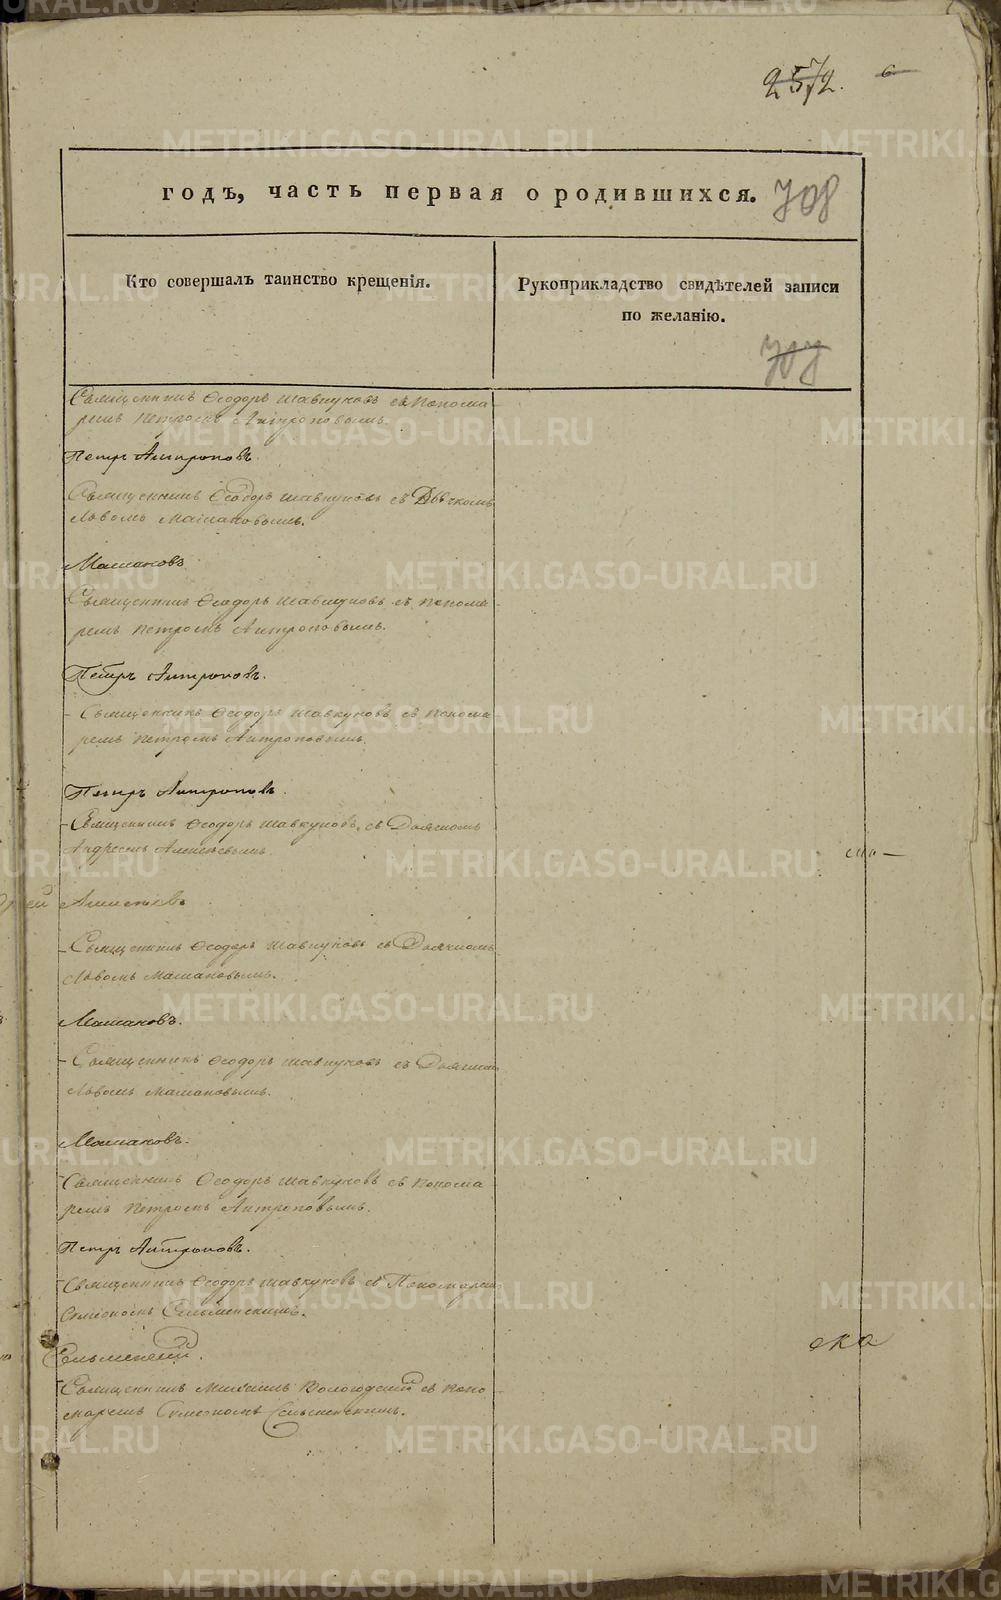 2572.
годъ, часть первая о родившихся. 708
Кто совершалъ таинство крещенія.
Рукоприкладство свидѣтелей записи
по желанію.
707
Священникъ Ѳеодоръ Шавкуновъ съ Понома
ремъ Петромъ Антроповымъ.
Петръ Антроповъ.
Священникъ Ѳеодоръ Шавкуновъ съ Дьячкомъ
Львомъ Мамановымъ.
Мамановъ
Священникъ Ѳеодоръ Шавкуновъ съ Понома
ремъ Петромъ Антроповымъ.
Петръ Антроповъ.
Священникъ Ѳеодоръ Шавкуновъ съ Понома
ремъ Петромъ Антроповымъ.
Петръ Антроповъ.
Священникъ Ѳеодоръ Шавкуновъ съ Дьячкомъ
Андреемъ
Священникъ Ѳеодоръ Шавкуновъ съ Дьячкомъ
Львомъ Мамановымъ.
Мамановъ.
Священникъ Ѳеодоръ Шавкуновъ съ Дьячкомъ
Львомъ Мамановымъ.
Мамановъ.
Священникъ Ѳеодоръ Шавкуновъ съ Понома
ремъ Петромъ Антроповымъ.
Петръ Антроповъ.
Священникъ Ѳеодоръ Шавкуновъ съ Пономаремъ
Симеономъ Сельменскимъ.
Сельменскій.
Священникъ Михаилъ Вологодскій съ Поно
маремъ Симеономъ Сельменскимъ.
METRIKI.GASO-URAL.RU